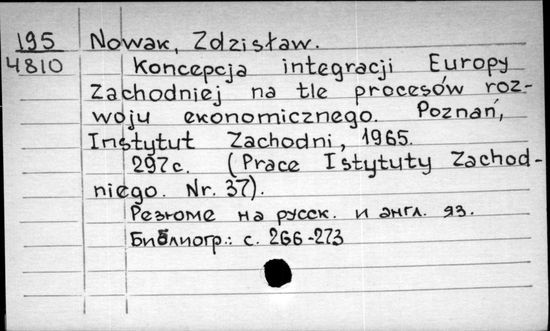 195 Nowak, Zdzisław.
4810 Koncepcja integracji Europy
Zachodniej na tle procesów roz-
woju ekonomicznego. Poznań,
Instytut Zachodni, 1965.
297c. (Prace Istytuty Zachod-
niego. Nr. 37).
Резюме на русск. и англ. яз.
Библиогр.: с. 266-273